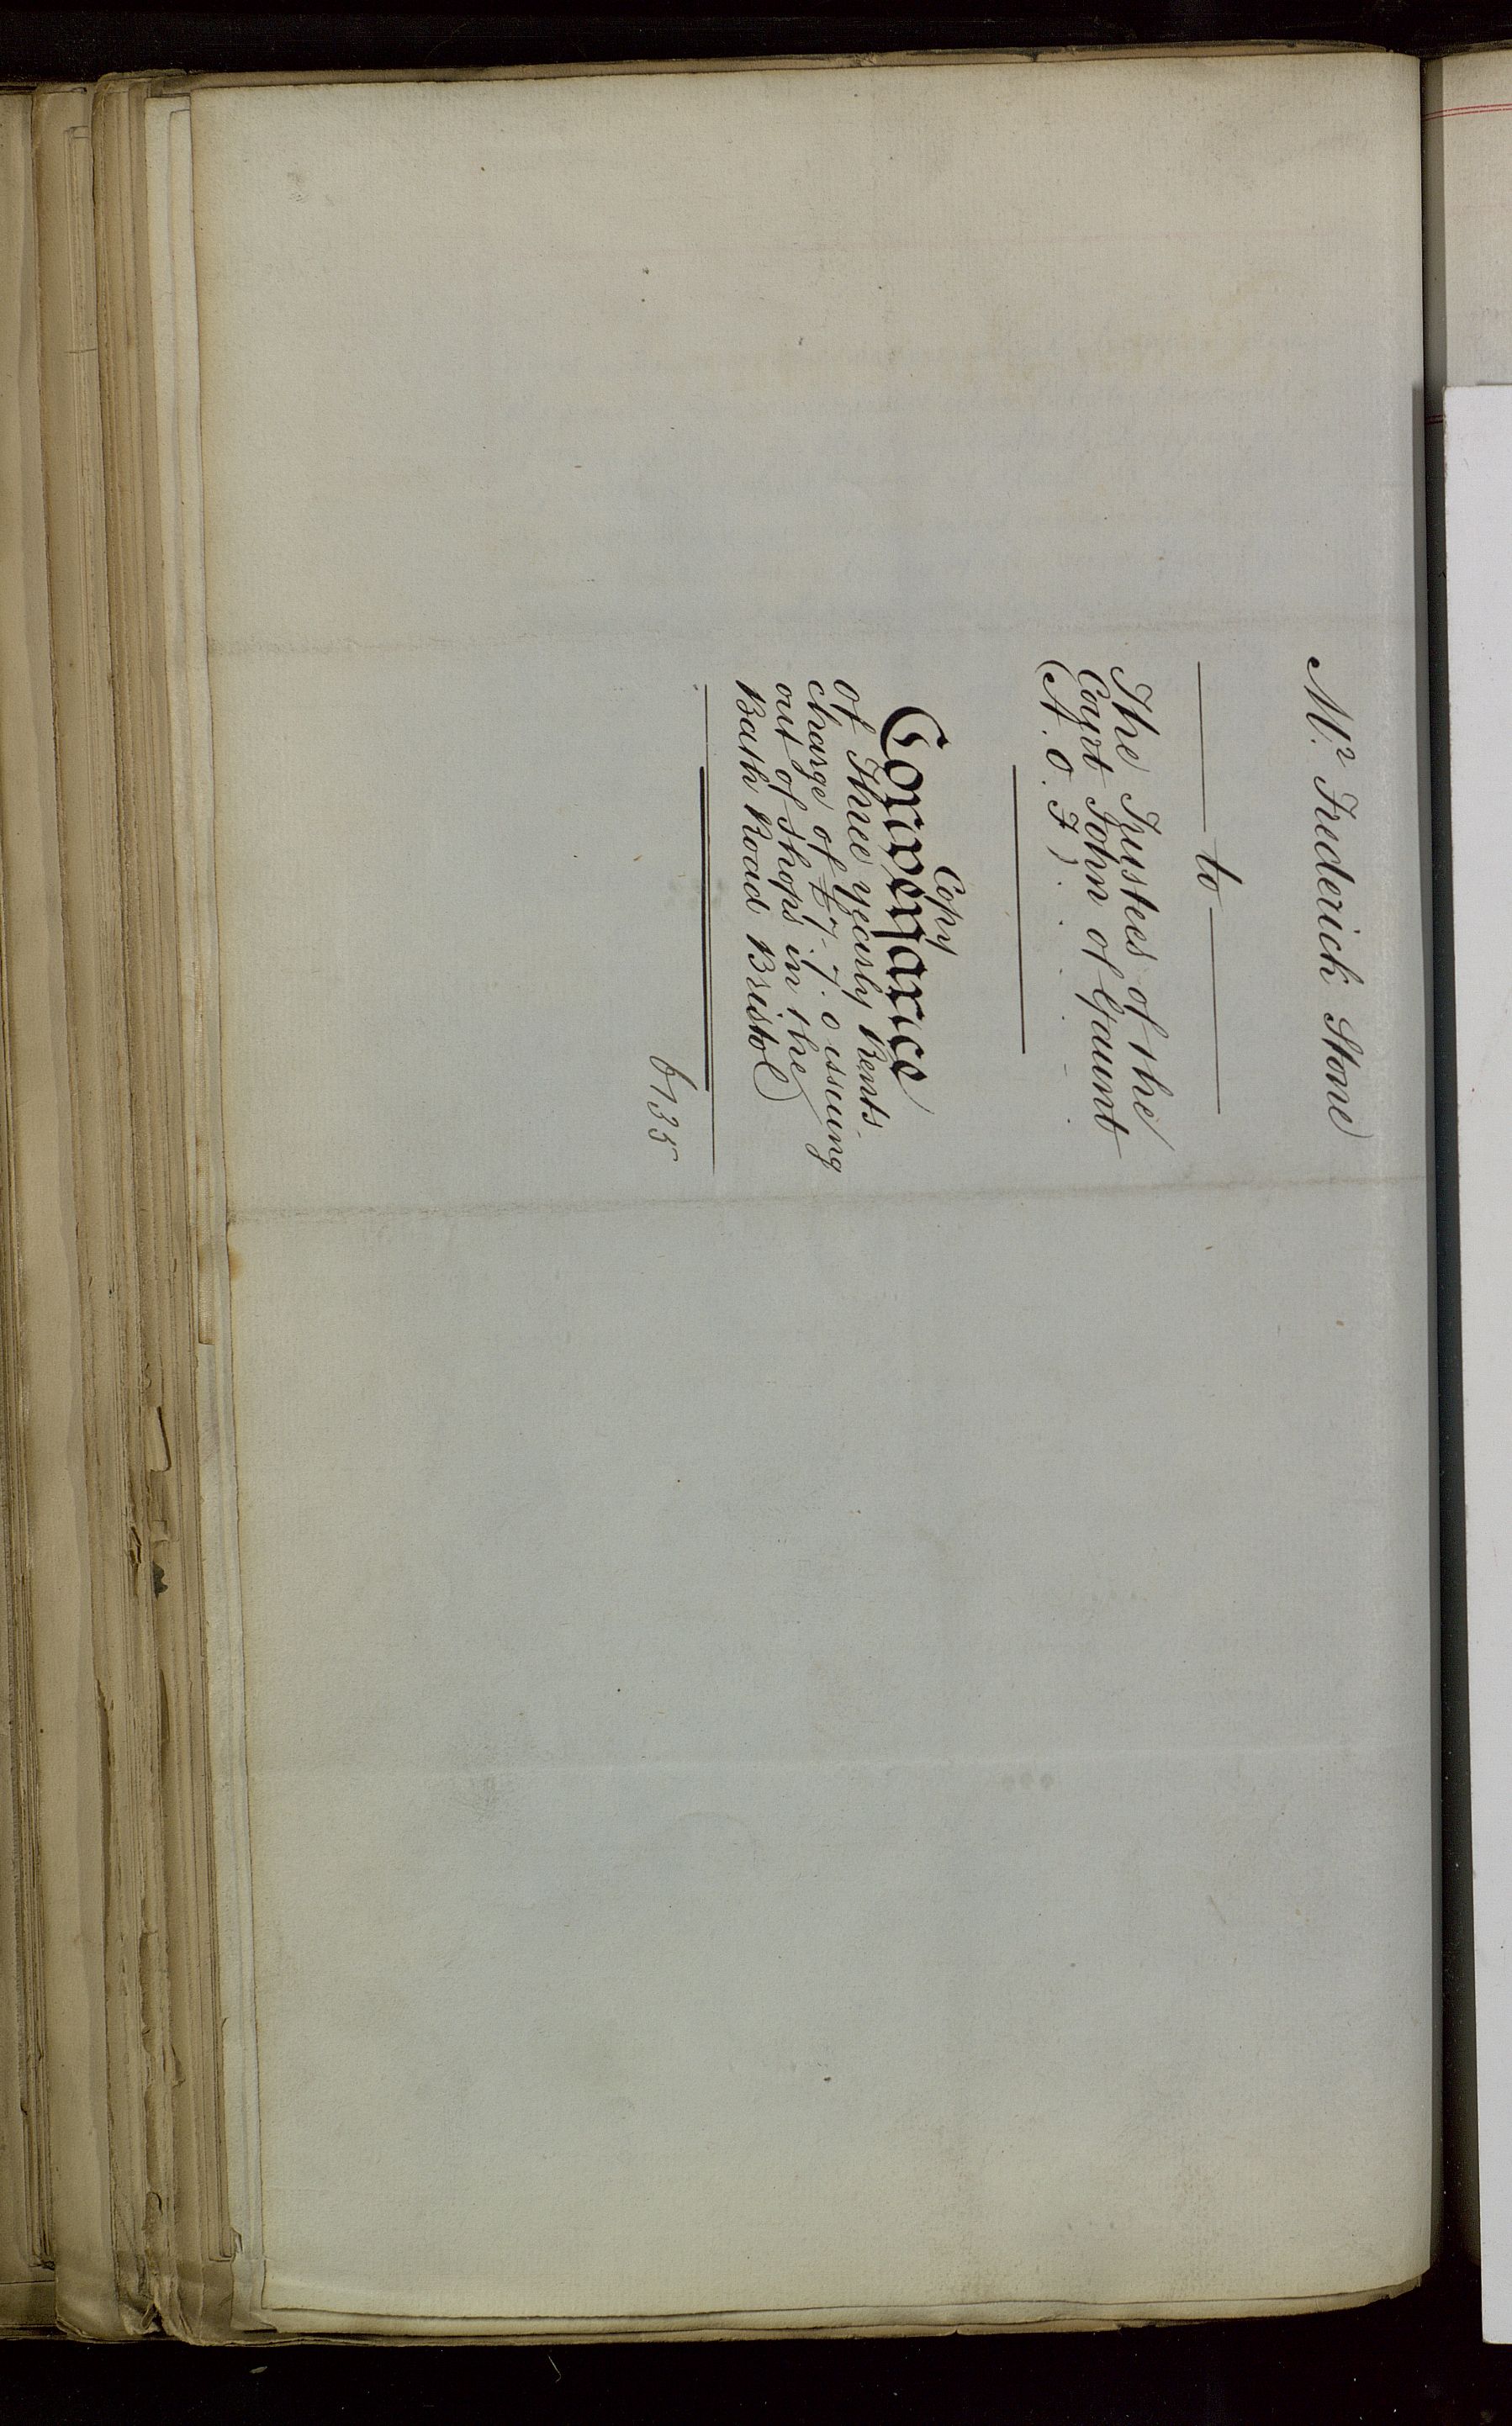 Mr. Frederick Stone
to
The Trustees of the
Court John of Gaunt
(A. O. F.)
Copy
Conveyance
of Three yearly Rents
charge of £7. 7. 0 issuing
out of shops in the
Bath Road Bristol
6735